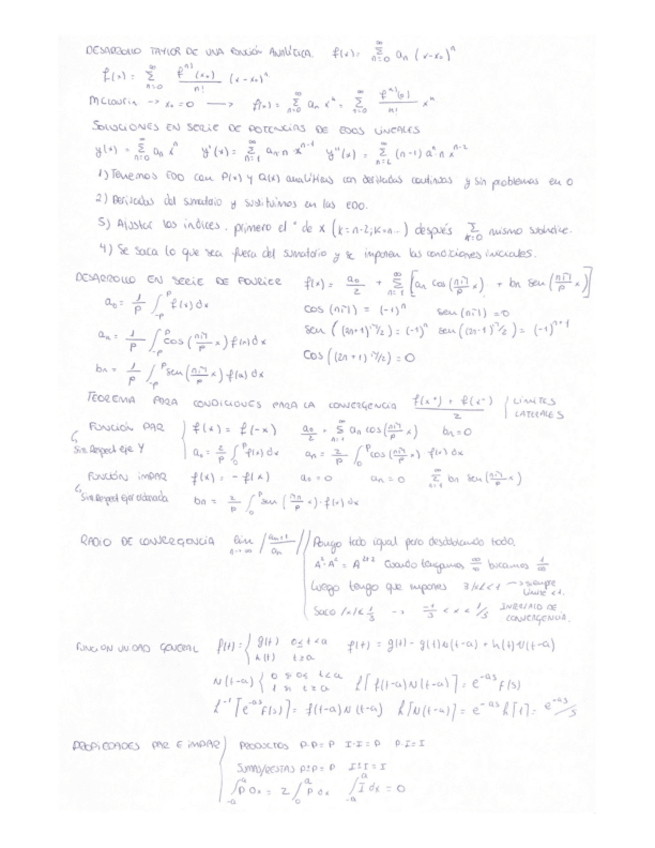 DESARROLLO TAYLOR DE UNA FUNCIÓN ANALÍTICA. f(x) = ∞ Σ n=0 an (x-x₀)ⁿ
f(x) = ∞ Σ n=0 fⁿ⁾(x₀)/n! (x-x₀)ⁿ
→ x₀ = 0 → f(x) = ∞ Σ n=0 an xⁿ = ∞ Σ n=0 fⁿ⁾(0)/n! xⁿ
SOLUCIONES EN SERIE DE POTENCIAS DE EDOS LINEALES
y(x) = ∞ Σ n=0 an xⁿ y'(x) = ∞ Σ n=1 an n xⁿ⁻¹ y''(x) = Σ (n-1) aⁿ n xⁿ⁻²
1) Tenemos EDO con P(x) y Q(x) analíticas con derivadas continuas y sin problemas en 0
2) Derivadas del sumatorio y sustituimos en las EDO.
3) Ajustar los índices. primero el ° de x (k=n-2; k=n...) después mismo subíndice.
4) Se saca lo que sea fuera del sumatorio y se imponen las condiciones iniciales.
DESARROLLO EN SERIE DE FOURIER f(x) = a₀/2 + ∞ Σ n=1 [an cos(nπ/P x) + bn sen(nπ/P x)]
a₀ = 1/P ∫₋ₚᴾ f(x) dx cos(nπ) = (-1)ⁿ sen(nπ) = 0
an = 1/P ∫₋ₚᴾ cos(nπ/P x) f(x) dx sen((2n+1)π/2) = (-1)ⁿ sen((2n-1)π/2) = (-1)ⁿ⁺¹
bn = 1/P ∫₋ₚᴾ sen(nπ/P x) f(x) dx cos((2n+1)π/2) = 0
TEOREMA PARA CONDICIONES PARA LA CONVERGENCIA f(x⁺) + f(x⁻)/2 | LÍMITES LATERALES
FUNCIÓN PAR f(x) = f(-x) a₀/2 + ∞ Σ n=1 an cos(nπ/P x) bn = 0
Sim Respect eje Y a₀ = 2/P ∫₀ᴾ f(x) dx an = 2/P ∫₀ᴾ cos(nπ/P x) f(x) dx
FUNCIÓN IMPAR f(x) = -f(x) a₀ = 0 an = 0 ∞ Σ n=1 bn sen(nπ/P x)
Sim Respect eje bn = 2/P ∫₀ᴾ sen(nπ/P x) · f(x) dx
RADIO DE CONVERGENCIA lim n→∞ |an+1/an| Pongo todo igual pero desdoblando todo.
Cuando tengamos ∞/∞ buscamos 1/∞
Luego tengo que imponer 3|x| < 1 → siempre
Saco |x| < 1/3 → -1/3 < x < 1/3 INTERVALO DE CONVERGENCIA.
FUNCIÓN UNIDAD GENERAL f(t) = { g(t) 0≤t<a h(t) t≥a f(t) = g(t) - g(t)U(t-a) + h(t)U(t-a)
U(t-a) { 0 si 0≤t<a 1 si t≥a L[f(t-a)U(t-a)] = e⁻ᵃˢ F(s)
L⁻¹[e⁻ᵃˢ F(s)] = f(t-a)U(t-a) L[U(t-a)] = e⁻ᵃˢ L[1] = e⁻ᵃˢ/s
PROPIEDADES PAR E IMPAR PRODUCTOS P·P=P I·I=P P·I=I
SUMAS/RESTAS P±P=P I±I=I
∫₋ₐᵃ P dx = 2 ∫₀ᵃ P dx ∫₋ₐᵃ I dx = 0